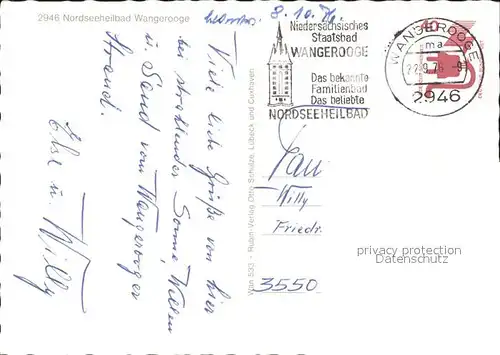 2946 Nordseeheilbad Wangerooge
8. 10. 76
Niedersächsisches
Staatsbad
WANGEROOGE
Das bekannte
Familienbad
Das beliebte
NORDSEEHEILBAD
WANGEROOGE
ma
22.9.76
2946
40
Viele liebe Grüße von hier
bei strahlender Sonne, Wellen
u. Sand vom Wangerooger
Strand.
Else u. Willy
Wan 533 - Rubin-Verlag Otto Schulze, Lübeck und Cuxhaven
Fam
Willy
Friedr.
3550
privacy protection
Datenschutz